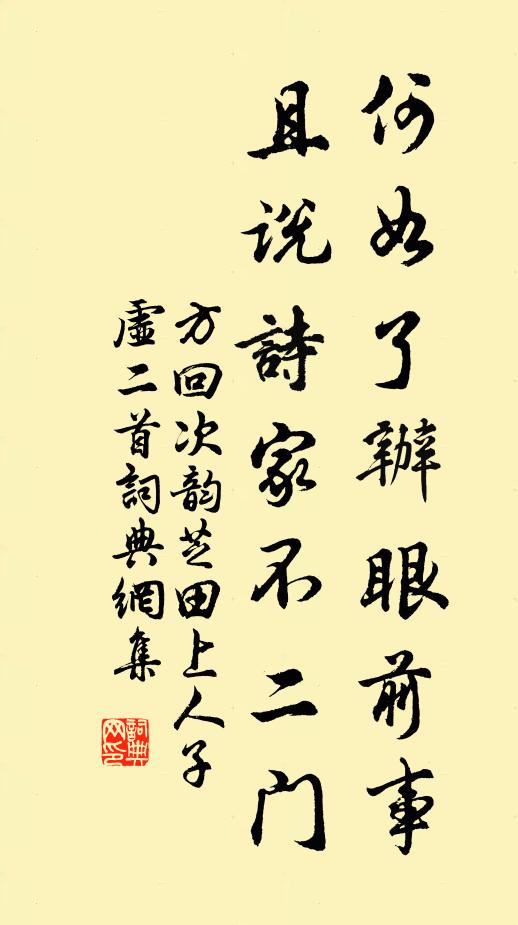 何如了辦眼前事
且説詩家不二門
方回次韵芝田上人子
虛二首詞典網集
詞典
网印